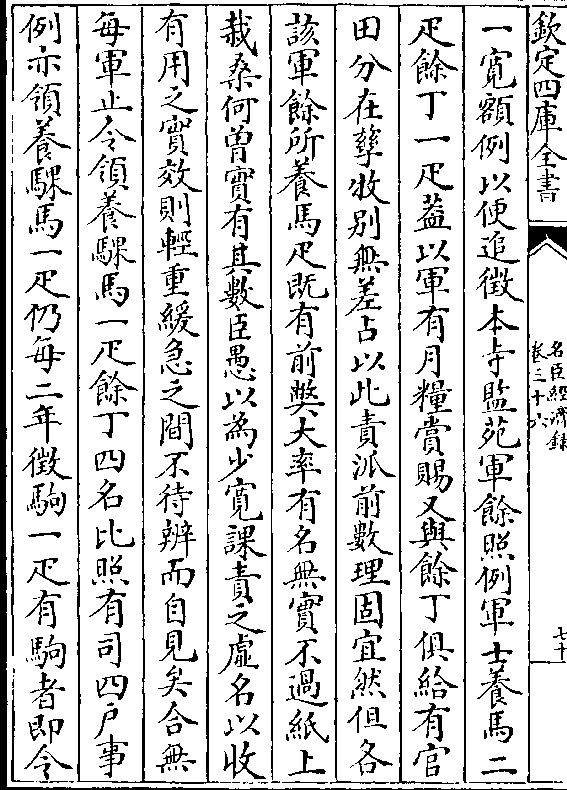 欽定四庫全書
名臣經濟錄
卷三十六
七十
一寬額例以便追徵本寺監苑軍餘照例軍士養馬二
疋餘丁一疋葢以軍有月糧賞賜又與餘丁俱給有官
田分在孳牧别無差占以此責派前數理固宜然但各
該軍餘所養馬疋既有前弊大率有名無實不過紙上
栽桑何曽實有其數臣愚以為少寬課責之虛名以收
有用之實效則輕重緩急之間不待辨而自見矣合無
每軍止令領養騍馬一疋餘丁四名比照有司四户事
例亦領養騍馬一疋仍每二年徵駒一疋有駒者即令